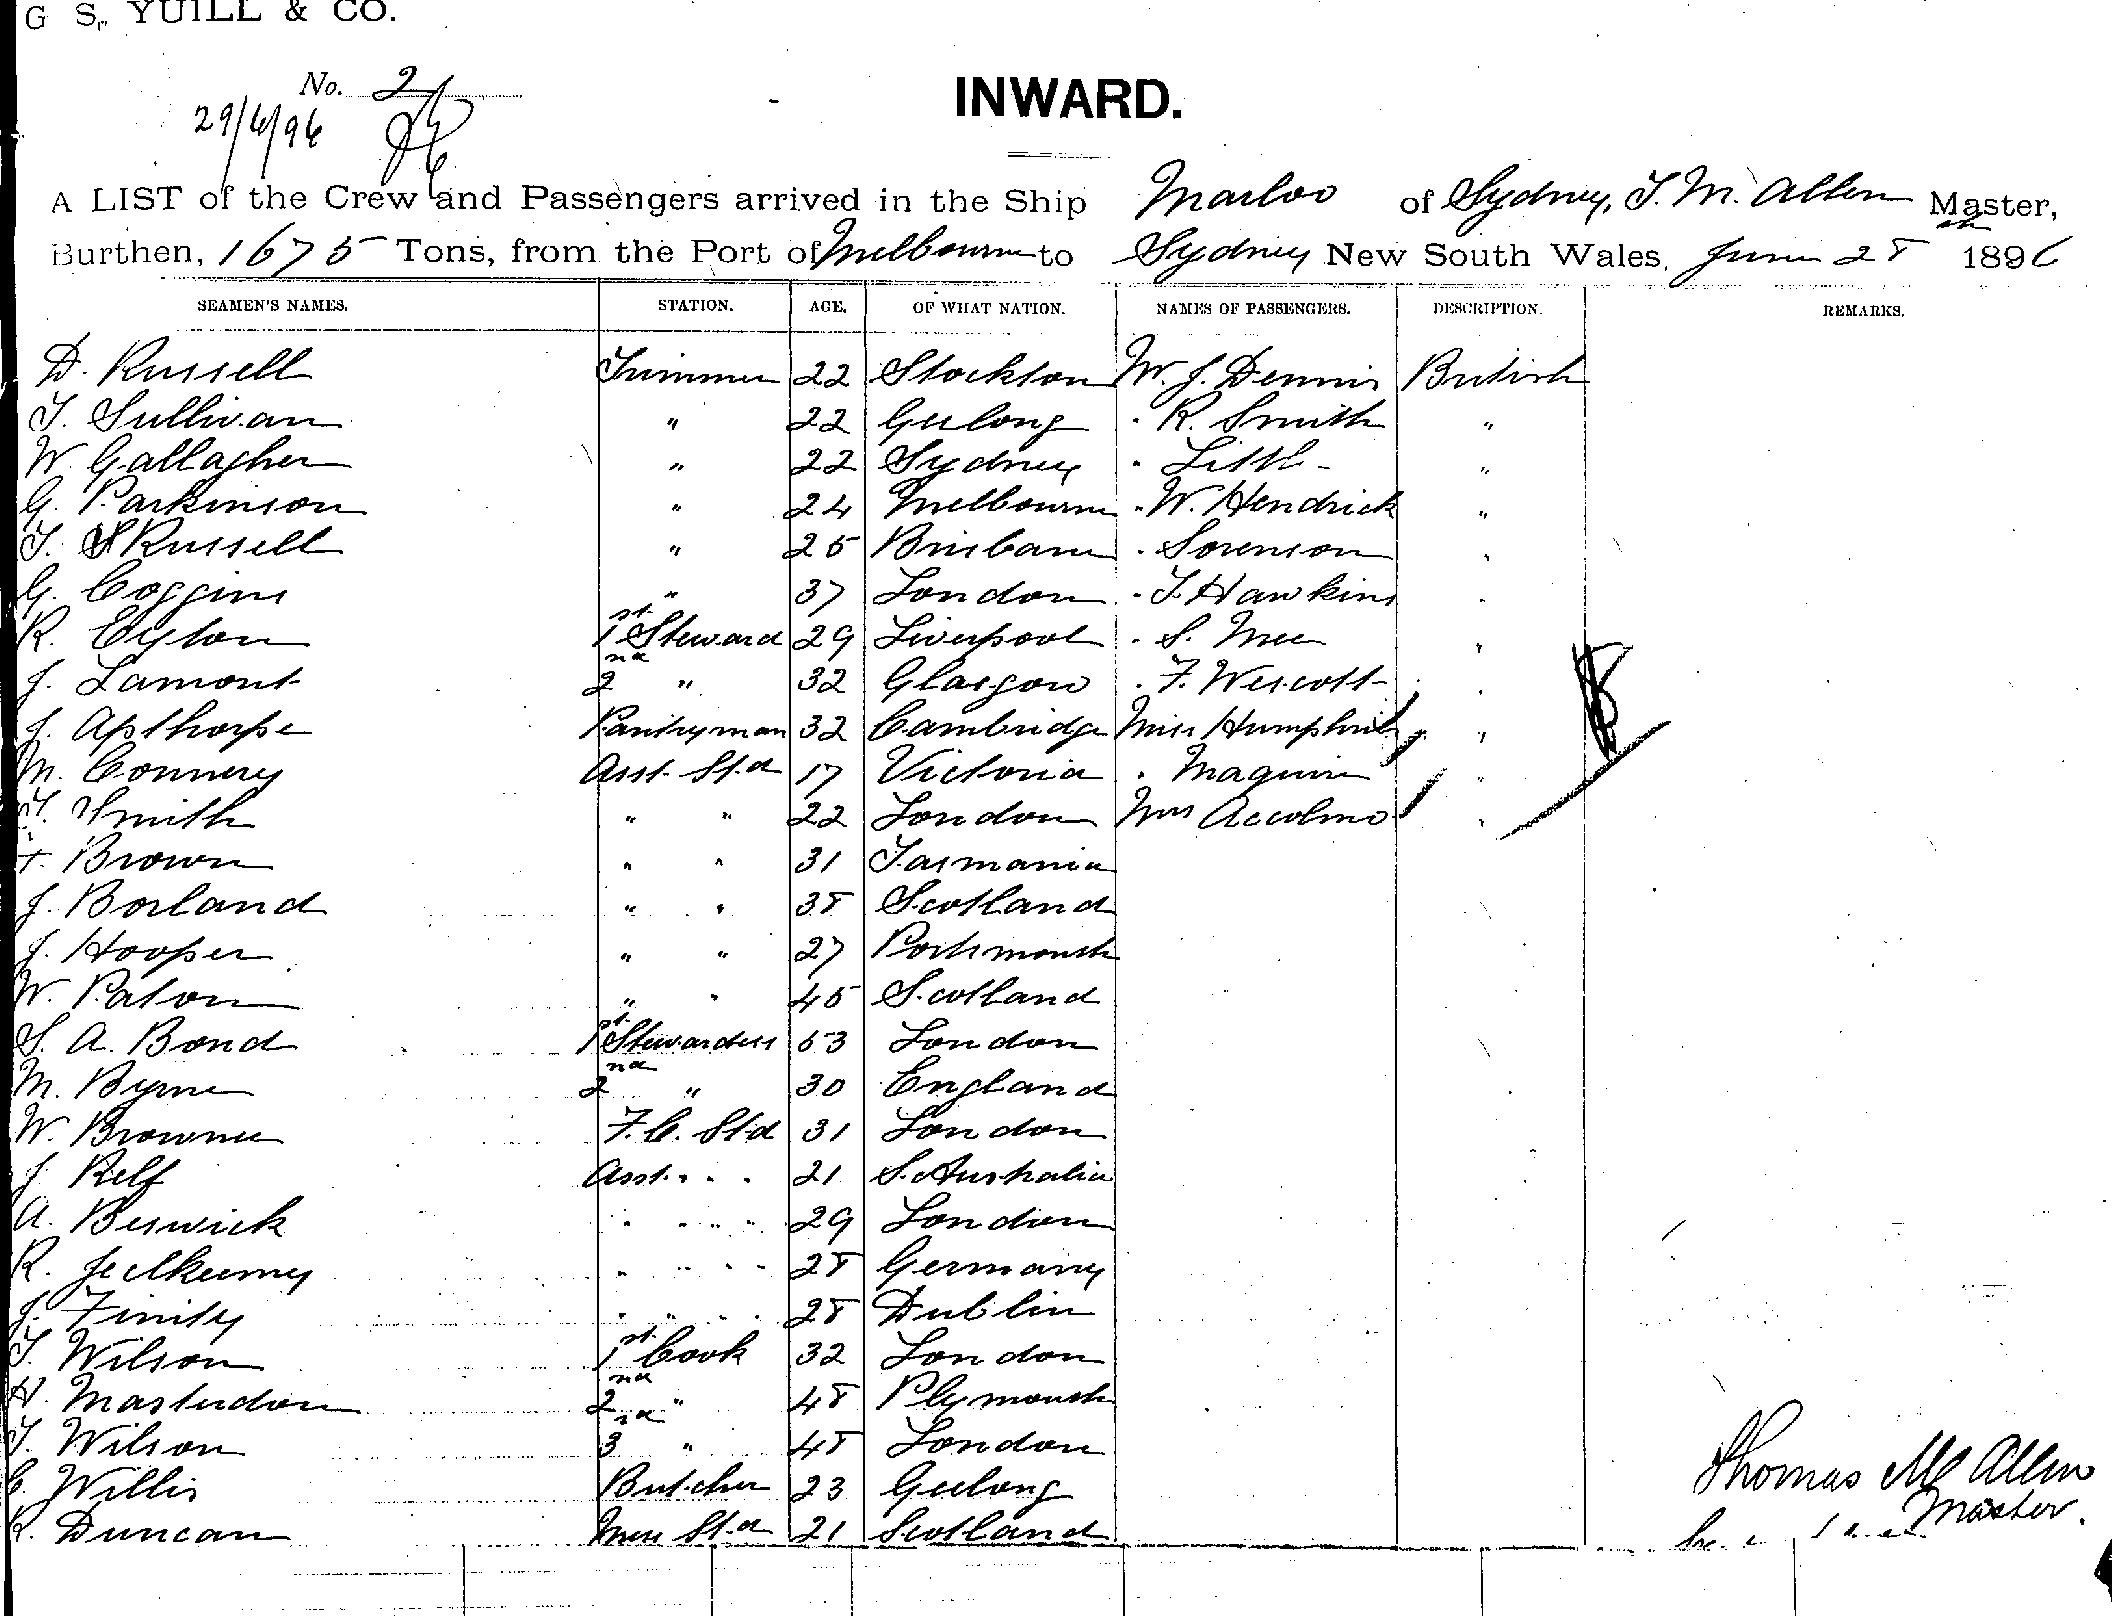 G. S. YUILL & CO.
No. 2
29/6/96
INWARD.
A LIST of the Crew and Passengers arrived in the Ship Marloo of Sydney, T. M. Allen Master,
Burthen, 1675 Tons, from the Port of Melbourne to Sydney New South Wales, June 28th 1896
SEAMEN'S NAMES. STATION. AGE. OF WHAT NATION. NAMES OF PASSENGERS. DESCRIPTION. REMARKS.
D. Russell Trimmer 22 Stockton W. J. Dennis British
T. Sullivan " 22 Geelong " R. Smith "
W. Gallagher " 22 Sydney " Little "
G. Parkinson " 24 Melbourne " W. Hendrick "
T. S Russell " 25 Brisbane " Sorenson "
G. Coggins " 37 London " T. Hawkins "
R. Eyton 1st Steward 29 Liverpool " S. Mee "
J. Lamont 2nd " 32 Glasgow " F. Wescott "
J. Apthorpe Pantryman 32 Cambridge Miss Humphries "
M. Connery Asst. Std 17 Victoria " Maguire "
T. Smith " " 22 London Mrs "
T. Brown " " 31 Tasmania
J. Borland " " 38 Scotland
J. Hooper " " 27 Portsmouth
W. Paton " " 45 Scotland
S. A. Bond 1st Stewardess 53 London
M. Byrne 2nd " 30 England
W. Browne F. C. Std 31 London
J. Relf Asst. " " " 21 S. Australia
A. Beswick " " " " 29 London
R. " " " " 28 Germany
J. Finity " " " " 28 Dublin
T. Wilson 1st Cook 32 London
H. Masterdon 2nd " 48 Plymouth
T. Wilson 3rd " 48 London
C. Willis Butcher 23 Geelong
R. Duncan Mess Std 21 Scotland
Thomas M Allen
Master.